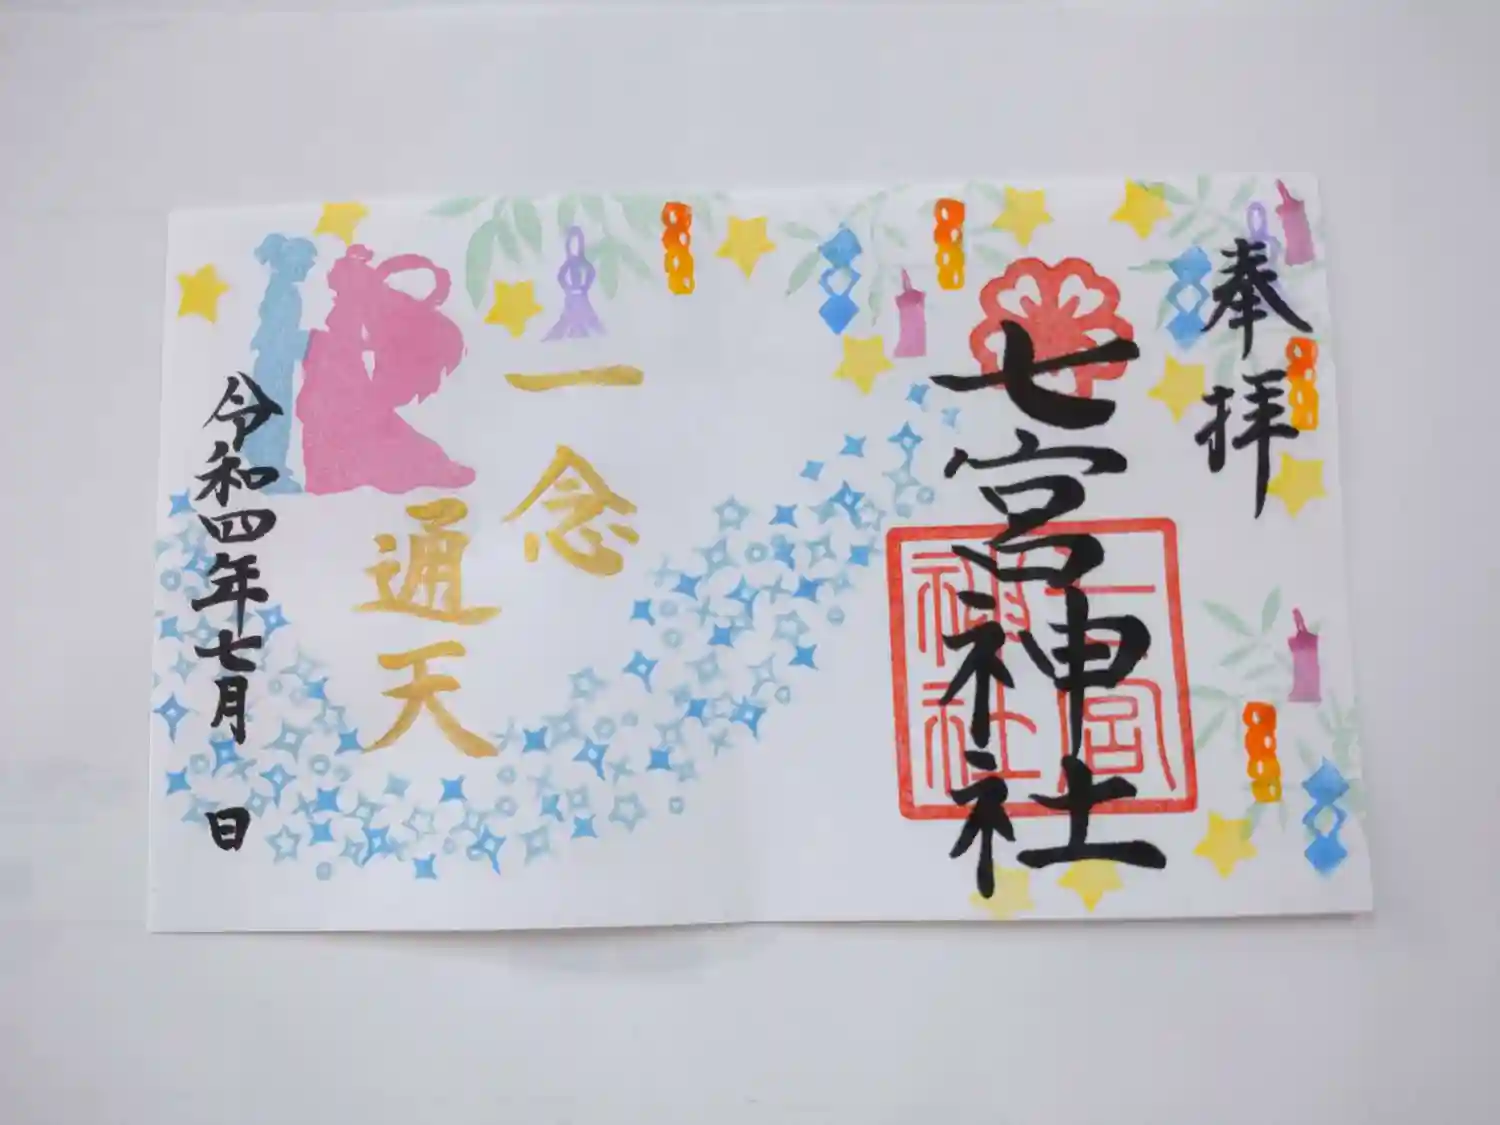 奉拝
七宮神社
七宮
神社
一念
通天
令和四年七月 日